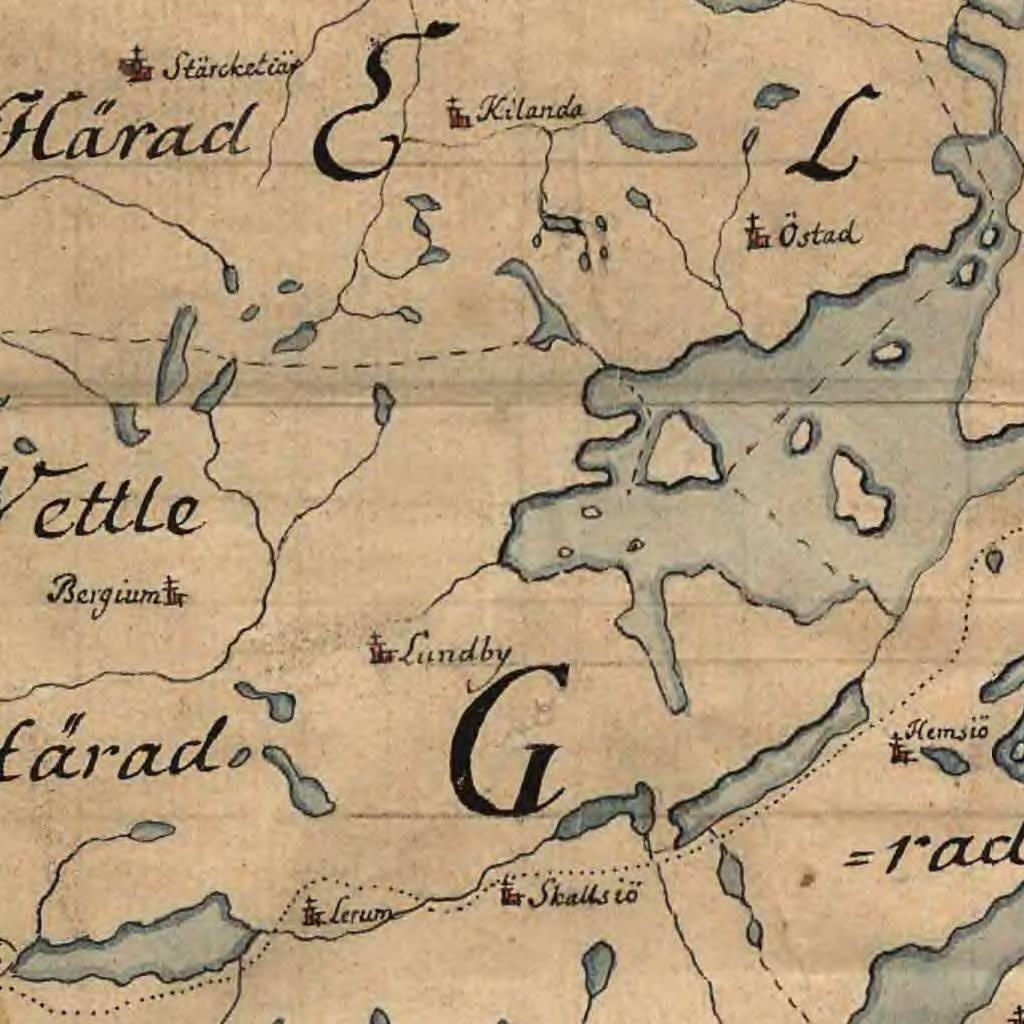 Stärcketiär
Härad
E
Kilanda
L
Östad
Wettle
Bergium
Lundby
Härad
G
Hemsiö
=rad
Lerum
Skallsiö